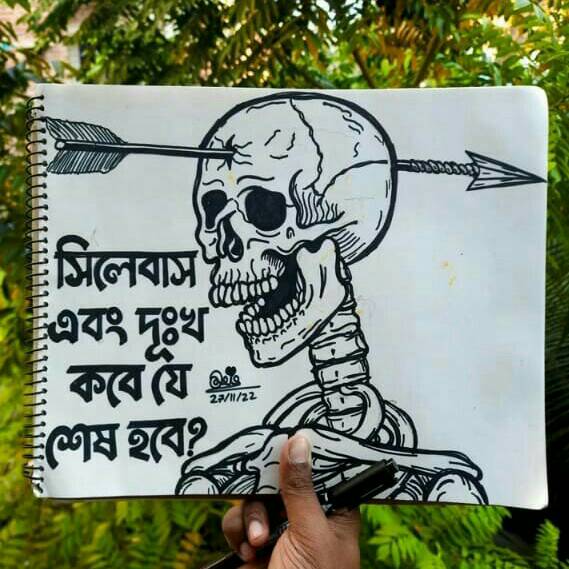 সিলেবাস
এবং দূঃখ
কবে যে
শেষ হবে?
27/11/22